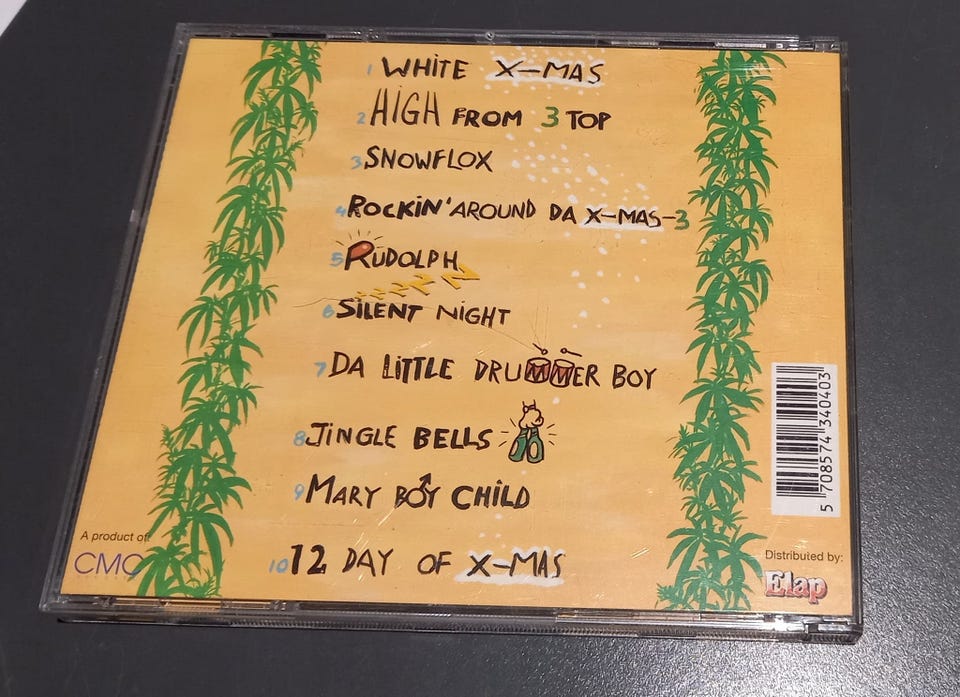 1 WHITE X-MAS
2 HIGH FROM 3 TOP
3 SNOWFLOX
4 ROCKIN' AROUND DA X-MAS-3
5 RUDOLPH
6 SILENT NIGHT
7 DA LITTLE DRUMMER BOY
8 JINGLE BELLS
9 MARY BOY CHILD
10 12 DAY OF X-MAS
A product of:
CMC
Distributed by:
Elap
5 708574 340403